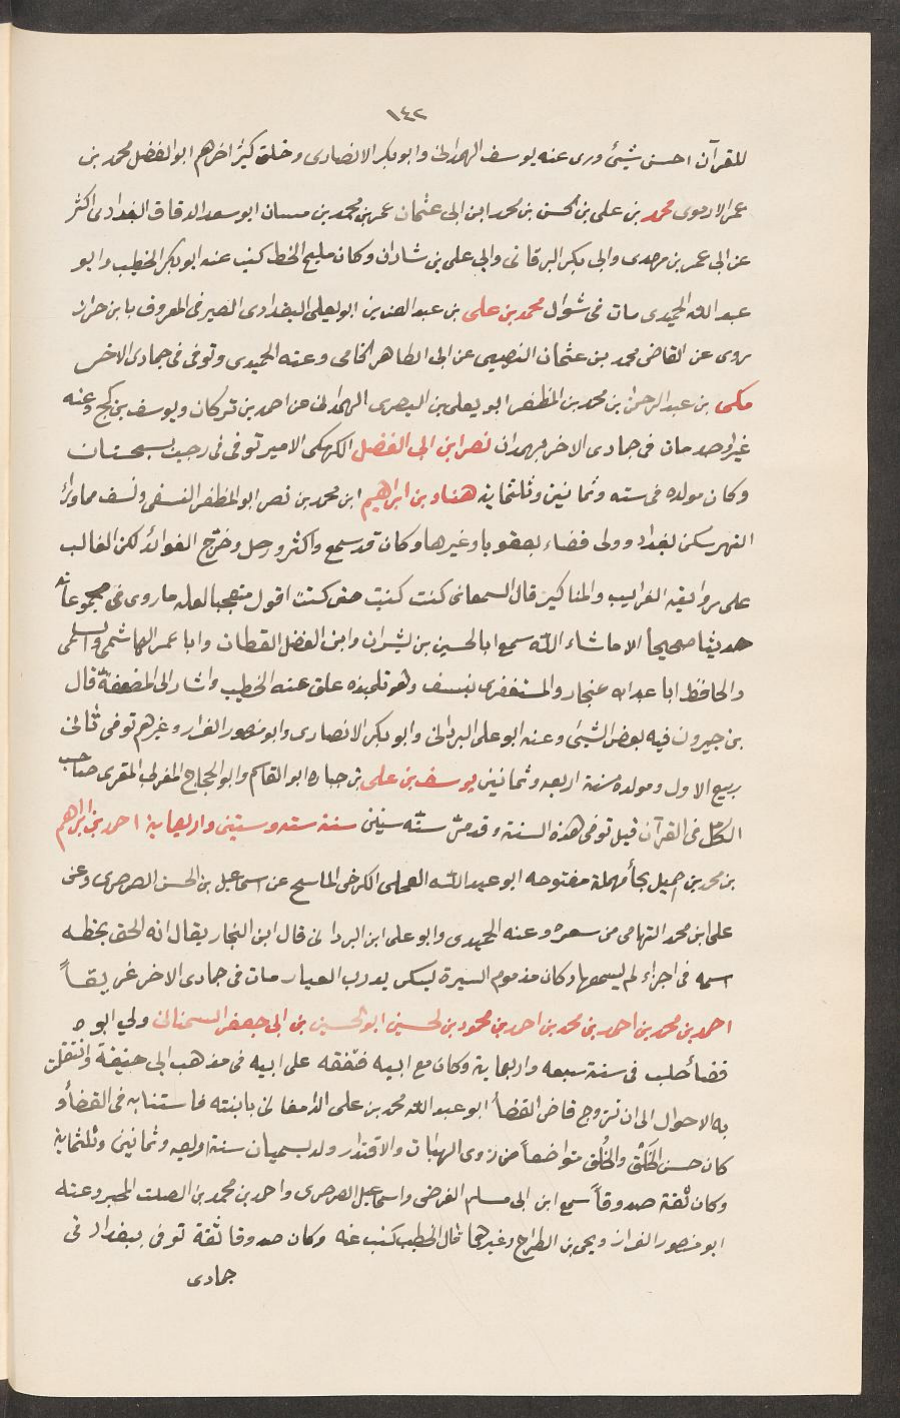 ١٤٢
للقرآن احسن شيئ ورى عنه يوسف الهمدانى وابوبكر الانصارى وخلق كثير اخرهم ابوالفضل محمد بن
عمر الارموى محمد بن على بن الحسن بن محمد ابن ابى عثمان عمر بن محمد بن مسان ابو سعد الدقاق البغدادى اكثر
عن ابى عمر بن مهدى وابى بكر البرقانى وابى على بن شاذان وكان مليح الخط كتب عنه ابوبكر الخطيب وابو
عبد الله الحميدى مات فى شوال محمد بن على بن عبد العزيز ابو يعلى البغدادى الصيرفى المعروف بابن حراز
روى عن القاضى محمد بن عثمان النصيبى عن ابى الطاهر الخامى وعنه الحميدى وتوفى فى جمادى الاخر
مكى بن عبد الرحمن بن محمد بن المظفر ابو يعلى بن البصرى الهمدانى عن احمد بن تركان ويوسف بن كج وعنه
غير واحد مات فى جمادى الاخر بهمدان نصر ابن ابى الفضل الكهكى الامير توفى فى رجب بسجستان
وكان مولده فى سته وثمانين وثلثماية هناد بن ابراهيم ابن محمد بن نصر ابوالمظفر النسفى ونسف مماوراء
النهر سكن بغداد وولى قضاء بعقوبا وغيرها وكان قد سمع واكثر ورحل وخرّج الفوائد لكن الغالب
على روايته الغرايب والمناكير قال السمعانى كنت كتبت حتى كنت اقول متعجبا لعله ماروى فى مجموعاته
حديثا صحيحاً الا ماشاء الله سمع ابا الحسين بن بشران وابن الفضل القطان وابا عمر الهاشمى والسلمى
والحافظ ابا عبد الله غنجار والمستغفرى بنسف وهو تلميذه علق عنه الخطيب واشار الى تضعيفه قال
بن خيرون فيه بعض الشئى وعنه ابو على البردانى وابو بكر الانصارى وابو منصور القزاز وغيرهم توفى ثانى
ربيع الاول ومولده سنة اربعه وثمانين يوسف بن على بن جباره ابو القاسم وابو الحجاج المغربى المقرى صاحب
الكامل فى القرآن قيل توفى هذه السنة وقد مرّ سنّه سنين سنة سته وستين واربعماية احمد بن ابراهيم
بن محمد بن احميل بحأ مهملة مفتوحه ابو عبد الله العجلى الكرخى الماسح عن اسماعيل بن الحسن الصرصرى وعن
على ابن محمد التهامى من شعره وعنه الحميدى وابو على ابن البردانى قال ابن النجار يقال انه الحق بخطه
اسمه فى اجزاء لم يسمعها وكان مذموم السيرة يسكن بدرب العيار مات فى جمادى الاخر غريقاً
احمد بن محمد بن احمد بن محمد بن احمد بن محمود بن لحسين ابو الحسين بن ابى جعفر السمنانى ولى ابوه
قضأ حلب فى سنة سبعه واربعماية وكان مع ابيه فتفقه على ابيه فى مذهب ابى حنيفة وانتقلت
به الاحوال الى ان تزوج قاضى القضأ ابو عبد الله محمد بن على الدامغانى بابنته فاستنابه فى القضأ و
كان حسن الخَلق والخُلق متواضعاً من ذوى الهيات والاقتدار ولد بسميان سنة اربعه وثمانين وثلثماية
وكان ثقة صدوقاً سمع ابن ابى مسلم الفرضى واسماعيل الصرصرى واحمد بن محمد بن الصلت المجبر وعنه
ابو منصور القزاز ويحى بن الطراح وغيرهما قال الخطيب كتبت عنه وكان صدوقا ثقة توفى ببغداد فى
جمادى